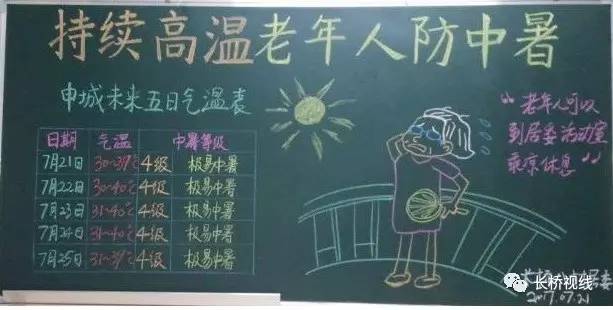 持续高温老年人防中暑
申城未来五日气温表
日期 气温 中暑等级
7月21日 30~39℃ 4级 极易中暑
7月22日 30~40℃ 4级 极易中暑
7月23日 31~40℃ 4级 极易中暑
7月24日 31~40℃ 4级 极易中暑
7月25日 31~39℃ 4级 极易中暑
"老年人可以
到居委活动室
乘凉休息"
居委
2017.07.21
长桥视线